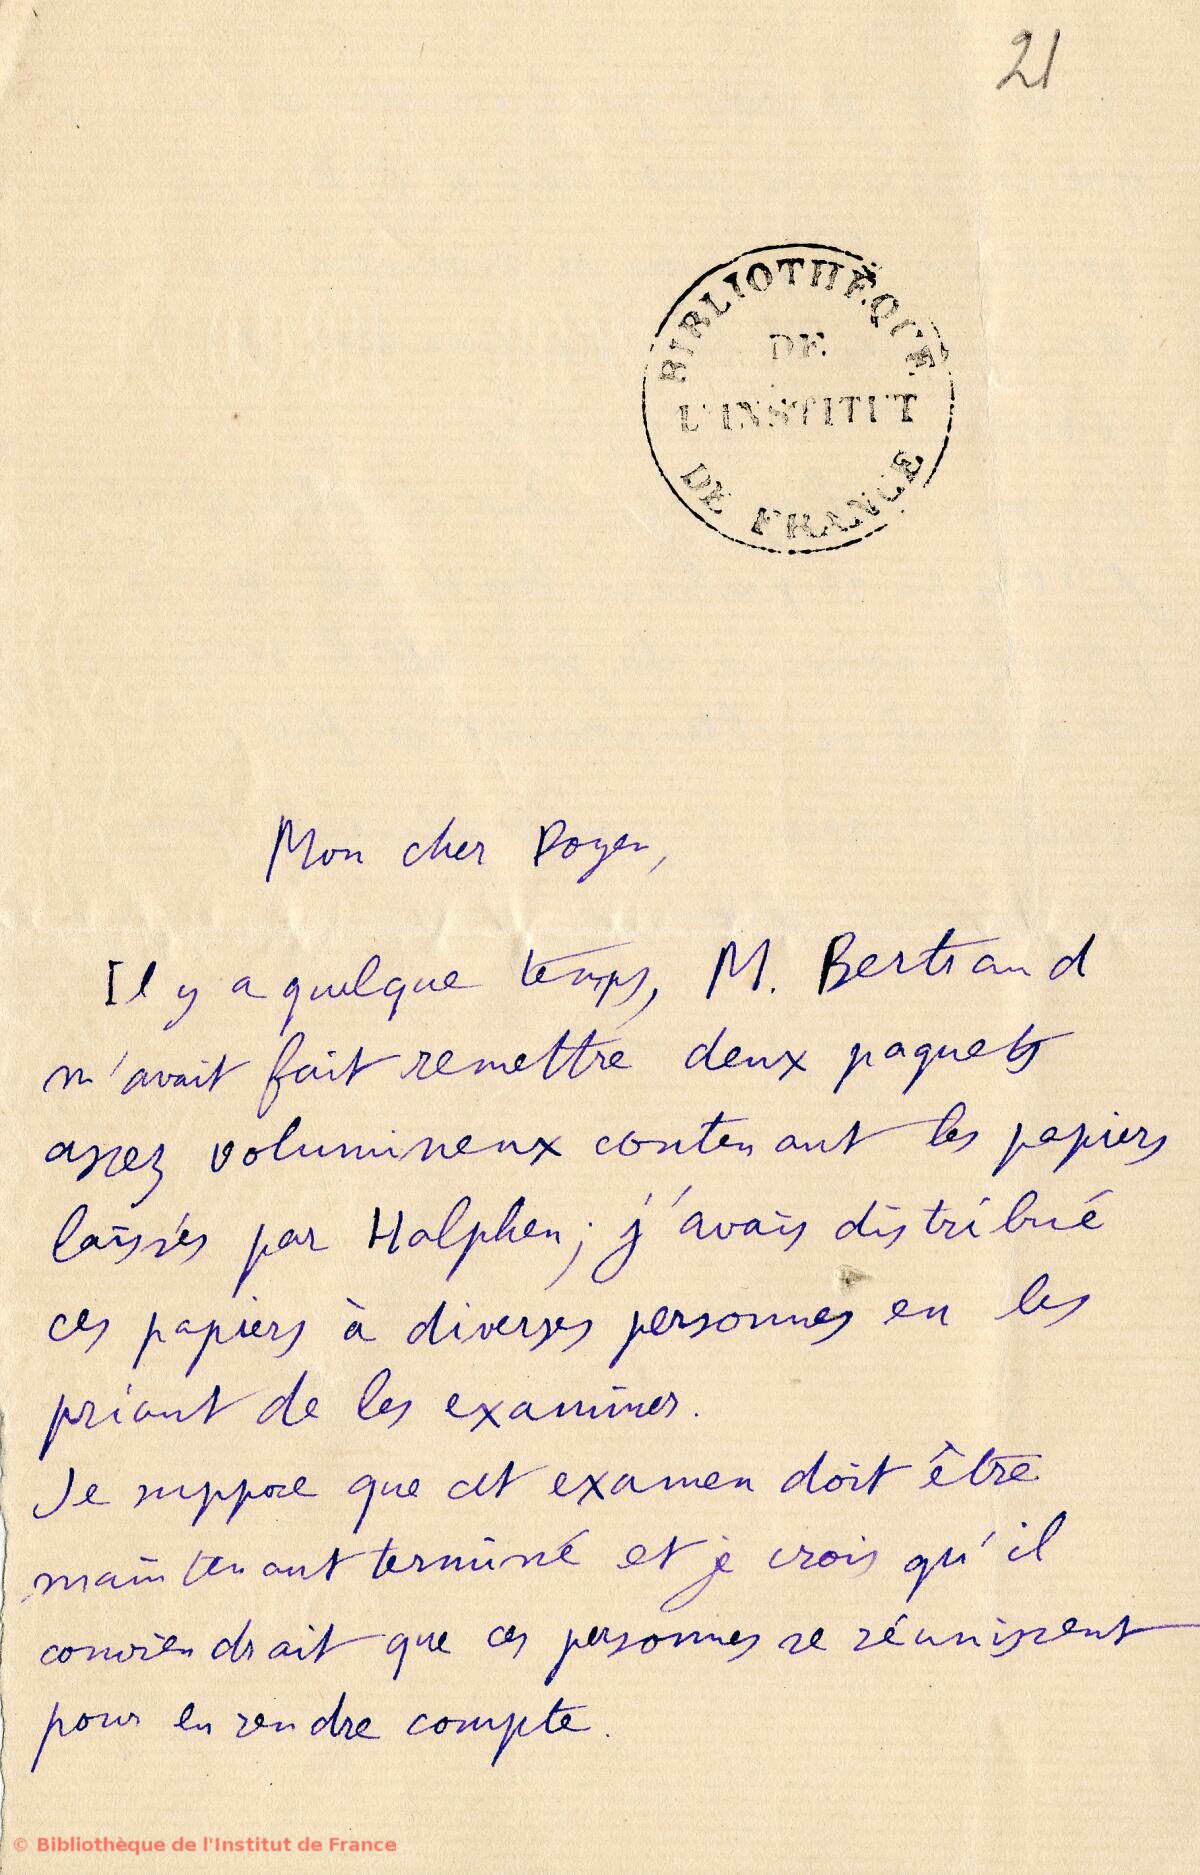 21
BIBLIOTHÈQUE
DE
L'INSTITUT
DE FRANCE
Mon cher Doyen,
Il y a quelque temps, M. Bertrand
m'avait fait remettre deux paquets
assez volumineux contenant les papiers
laissés par Halphen; j'avais distribué
ces papiers à diverses personnes en les
priant de les examiner.
Je suppose que cet examen doit être
maintenant terminé et je crois qu'il
conviendrait que ces personnes se réunissent
pour en rendre compte.
© Bibliothèque de l'Institut de France